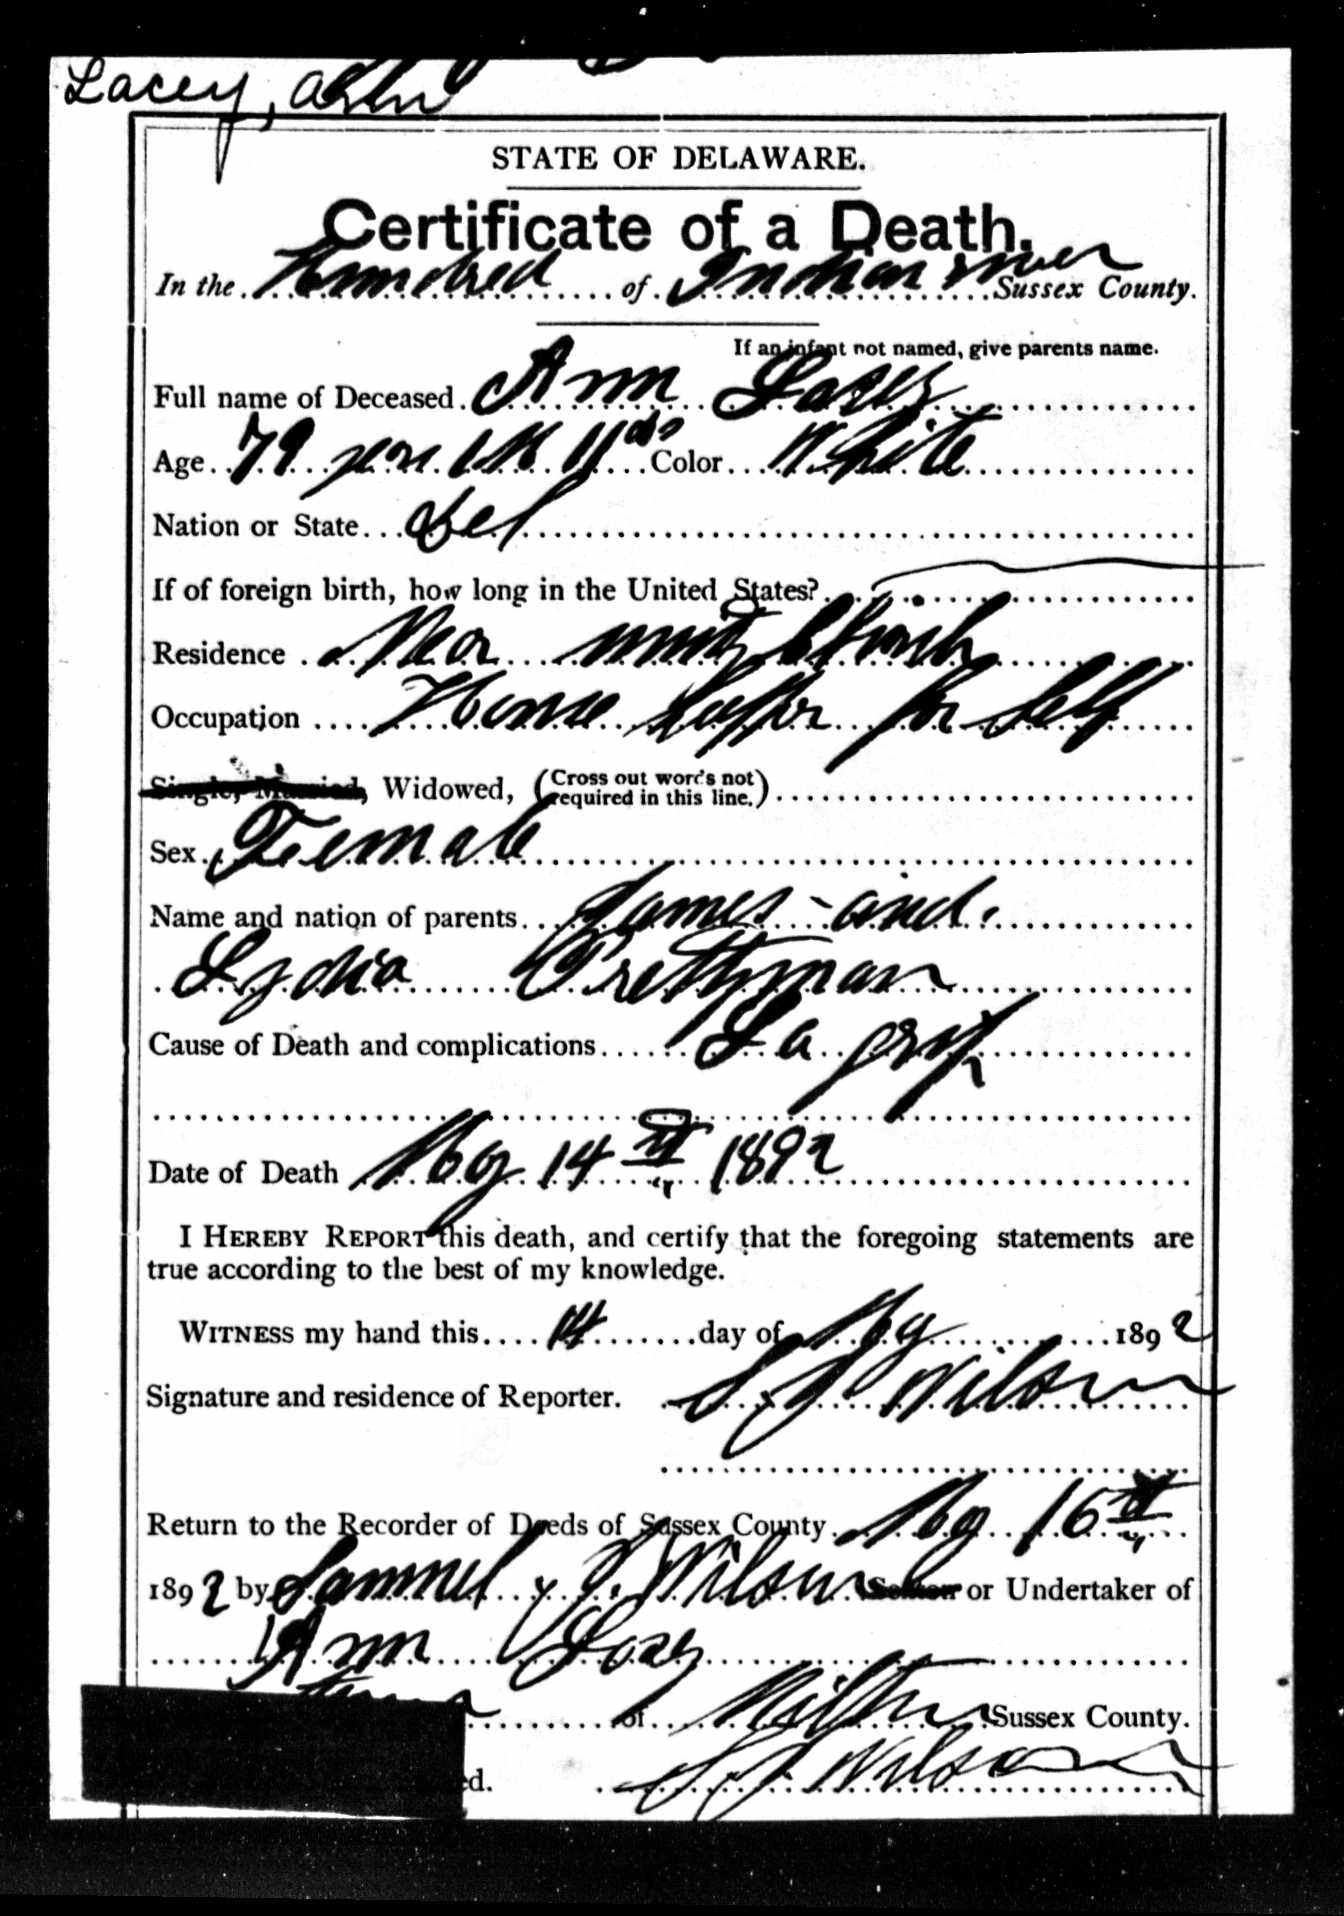 Lacey, Ann
STATE OF DELAWARE.
Certificate of a Death.
In the Hundred of Indian river Sussex County.
If an infant not named, give parents name.
Full name of Deceased Ann Lacey
Age 79 years 1 M 11 ds Color White
Nation or State Del
If of foreign birth, how long in the United States?
Residence Near unity Church
Occupation House Keeper for Self
Single, Married, Widowed, (Cross out words not required in this line.)
Sex Female
Name and nation of parents James - and
Lydia Prettyman
Cause of Death and complications La grip
Date of Death May 14th 1892
I HEREBY REPORT this death, and certify that the foregoing statements are
true according to the best of my knowledge.
WITNESS my hand this 14 day of May 1892
Signature and residence of Reporter. S J Wilson
Return to the Recorder of Deeds of Sussex County May 16th
1892 by Samuel J. Wilson Sexton or Undertaker of
Ann Lacy
of Milton Sussex County.
ed. S J Wilson